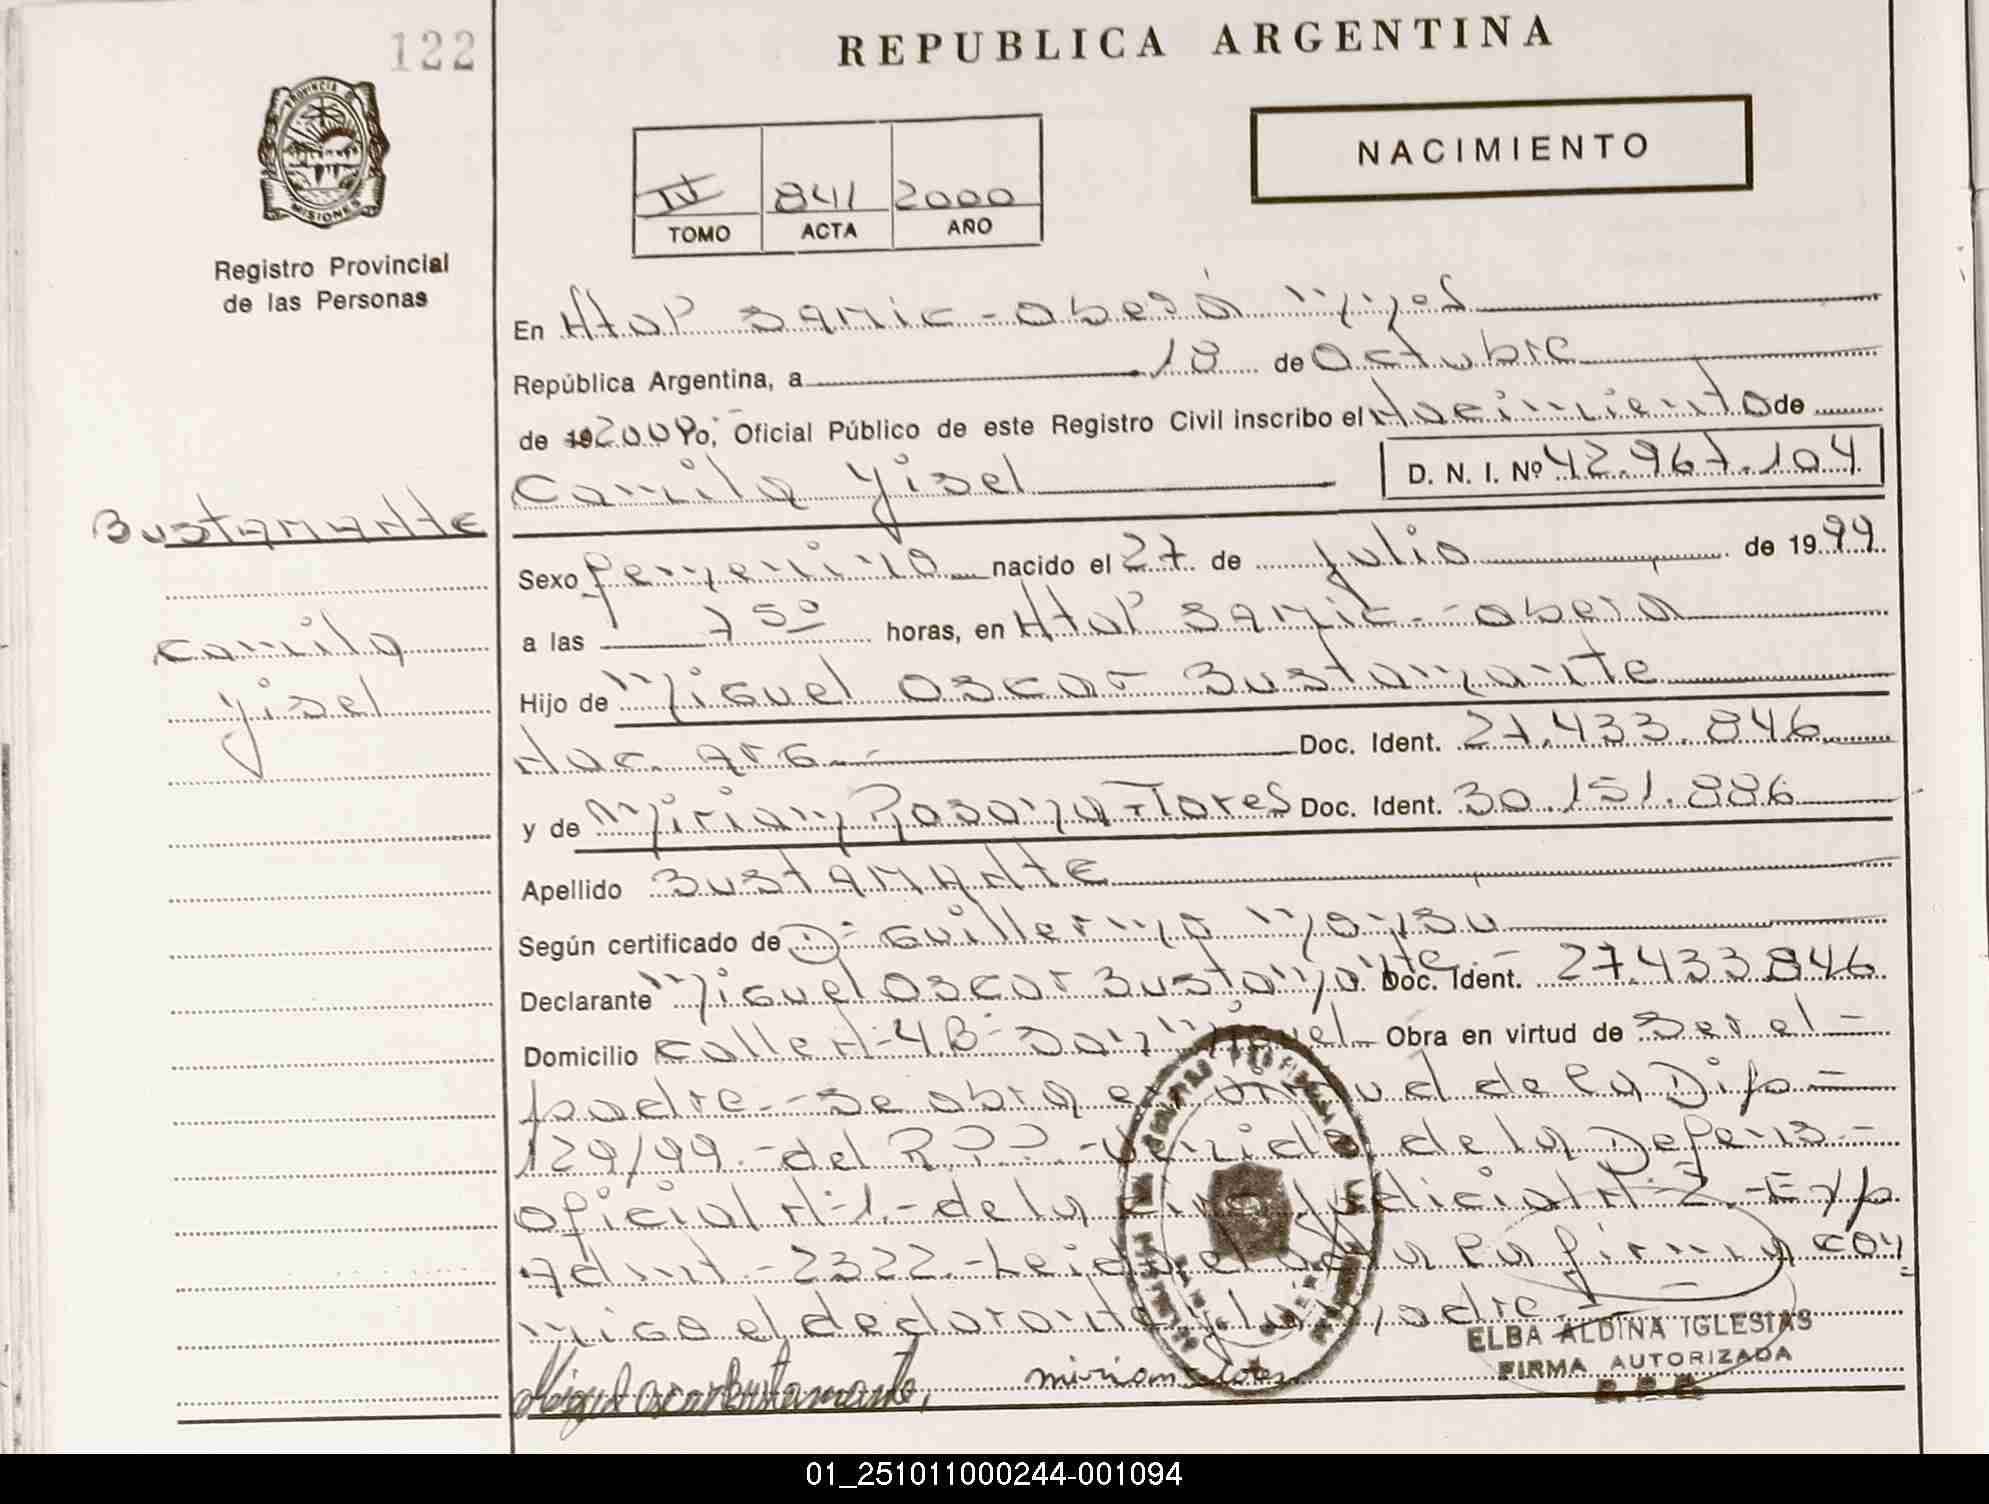 122
REPUBLICA ARGENTINA
PROVINCIA DE
MISIONES
NACIMIENTO
IV 841 2000
TOMO ACTA AÑO
Registro Provincial
de las Personas
En Htal Samic - Oberá Mnes
República Argentina, a 18 de Octubre
de 19 2000 Yo, Oficial Público de este Registro Civil inscribo el Nacimiento de
Camila Yisel D. N. I. Nº 42.967.104
Bustamante
Sexo femenino nacido el 27 de Julio de 1999
a las 7 50 horas, en Htal Samic - Oberá
Camila
Yisel
Hijo de Miguel Oscar Bustamante
Nac. Arg - Doc. Ident. 27.433.846
y de Miriam Rosana Flores Doc. Ident. 30.151.886
Apellido Bustamante
Según certificado de Dr Guillermo
Declarante Miguel Oscar Bustamante - Doc. Ident. 27.433.846
Domicilio Calle Nº 4B - San Miguel Obra en virtud de Ser el -
padre. - Se obra en virtud de la Dispo =
129/99. - del R.P.P. - de la Defens. -
oficial Nº 1. - de la Judicial Nº 2. - Exp.
Admt. - 2322. - Leida el acta la firma con
migo el declarante y la madre. -
Miguel Oscar Bustamante, miriam flores
ELBA ALDINA IGLESIAS
FIRMA AUTORIZADA
01_251011000244-001094